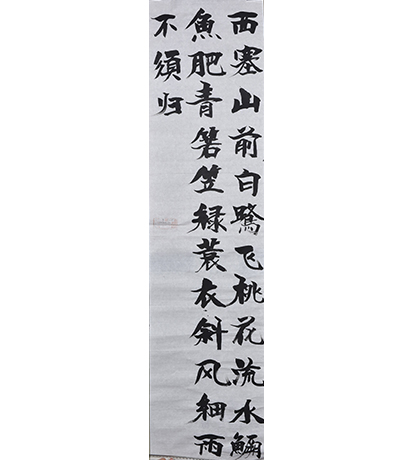 西塞山前白鷺飞桃花流水鱖
魚肥青箬笠緑蓑衣斜风細雨
不須归